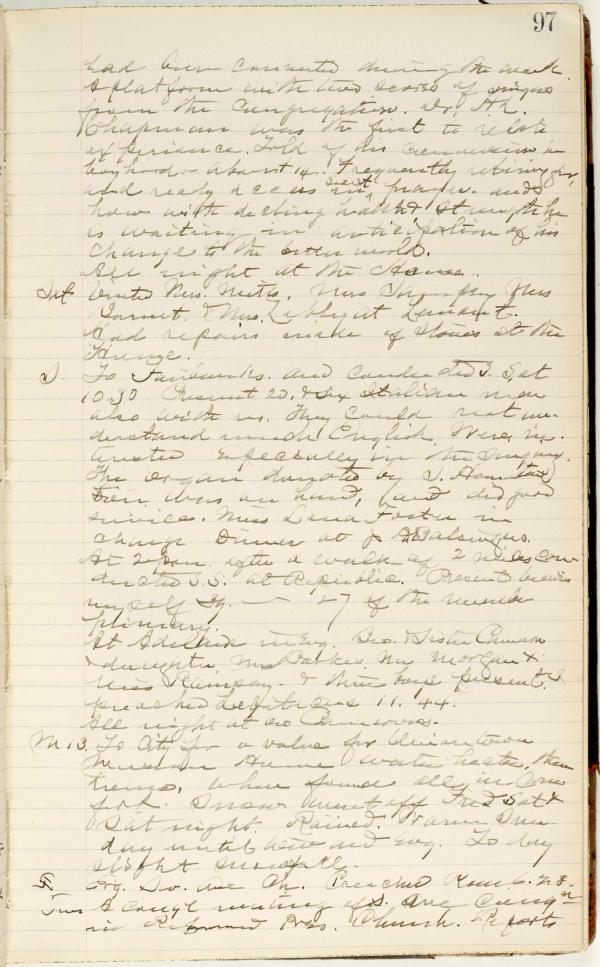 97
had been converted during the week.
A platform with two scores of singers
from the Congregation. Dr. A.H.
Chapman was the first to relate
experience. Told of his conversion in
boyhood - about 14. Frequently retiring for
and ready access in secret prayer. and
how with declining health & strength he
is waiting in anticipation of his
change to the better world.
All night at the Home.
Sat Visited Mrs. Mrs. Mrs
& Mrs. Libby at Lemont.
Had repairs made of stoves at the
Home.
S. To Fairbanks. and conducted S. S. at
10.30 Present 20. & six Italian men
also with us. They could not un-
derstand much English. Were in-
terested especially in the singing.
The organ donated by S.
was on hand, and did good
service. Miss Lena Foster in
charge Dinner at J.
At 2 p.m. after a walk of 2 miles con-
ducted S.S. at Republic. Present besides
myself 39. — 27 of the number
primary.
At Adelaide in Evg. Bro. & Sister Cameron
& daughter, Mrs Parkes, Mr. Morgan &
Miss Ramsay. & three boys present. I
preached 11. 44.
All night at Bro Camerons.
M 13. To City for a valve for Uniontown
Home water heater, then
home, where found all in com-
fort. Snow went off Fri. Sat &
Sat night. Rained. Warm Sun-
day until Evg. To day
slight snowfall.
Evg. Ave Ch. Preached Rom 6. 23.
Tues A Cong'l meeting of S. Ave Cong'n
in Reformed Pres. Church. Reports